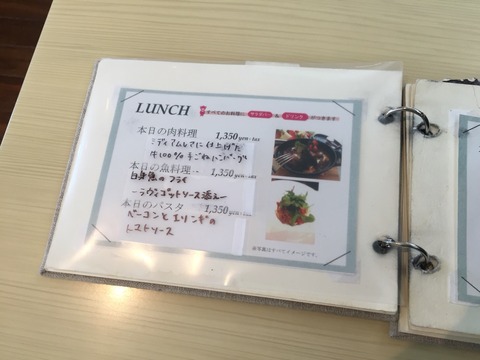 LUNCH
すべてのお料理に サラダバー & ドリンク がつきます
本日の肉料理 1,350yen+tax
ミディアムレアに仕上げた
牛100%手ごねハンバーグ
本日の魚料理 1,350yen+tax
白身魚のフライ
ーラヴィゴットソース添えー
本日のパスタ 1,350yen+tax
ベーコンとエリンギの
トマトソース
※写真はすべてイメージです。